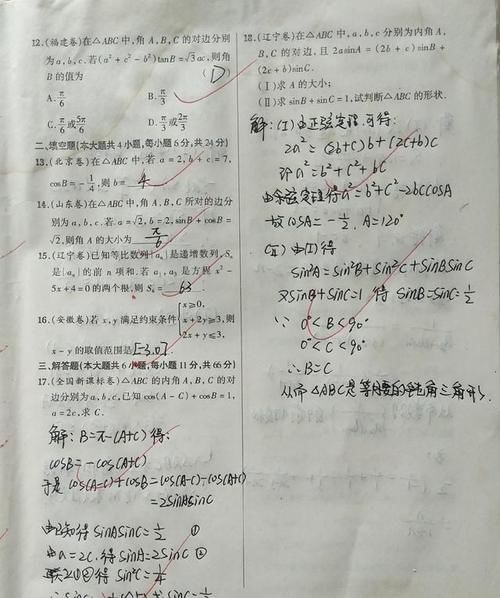 12.(福建卷)在△ABC中,角A,B,C的对边分别
为a,b,c.若(a²+c²-b²)tanB=√3ac,则角
B的值为 (D)
A. π/6 B. π/3
C. π/6或5π/6 D. π/3或2π/3
二、填空题(本大题共4小题,每小题6分,共24分)
13.(北京卷)在△ABC中,若a=2,b+c=7,
cosB=-1/4,则b= 4
14.(山东卷)在△ABC中,角A,B,C所对的边分
别为a,b,c.若a=√2,b=2,sinB+cosB=
√2,则角A的大小为 π/6
15.(辽宁卷)已知等比数列{aₙ}是递增数列,Sₙ
是{aₙ}的前n项和.若a₁,a₃是方程x²-
5x+4=0的两个根,则S₆= 63
16.(安徽卷)若x,y满足约束条件{x≥0, x+2y≥3, 2x+y≤3,则
x-y的取值范围是[-3,0].
三、解答题(本大题共6小题,每小题11分,共66分)
17.(全国新课标卷)△ABC的内角A,B,C的对
边分别为a,b,c,已知cos(A-C)+cosB=1,
a=2c,求C.
解:B=π-(A+C)得:
cosB=-cos(A+C)
于是cos(A-C)+cosB=cos(A-C)-cos(A+C)
=2sinAsinC
由已知得sinAsinC=1/2 ①
由a=2c,得sinA=2sinC ②
联立①②得sin²C=1/4
18.(辽宁卷)在△ABC中,a,b,c分别为内角A,
B,C的对边,且2asinA=(2b+c)sinB+
(2c+b)sinC.
(Ⅰ)求A的大小;
(Ⅱ)求sinB+sinC=1,试判断△ABC的形状.
解:(I)由正弦定理,可得:
2a²=(2b+c)b+(2c+b)c
即a²=b²+c²+bc
由余弦定理得a²=b²+c²-2bccosA
故cosA=-1/2,A=120°
(Ⅱ)由(I)得
sin²A=sin²B+sin²C+sinBsinC
又sinB+sinC=1 得 sinB=sinC=1/2
∵ 0°<B<90°
0°<C<90°
∴B=C
从而△ABC是等腰的钝角三角形.